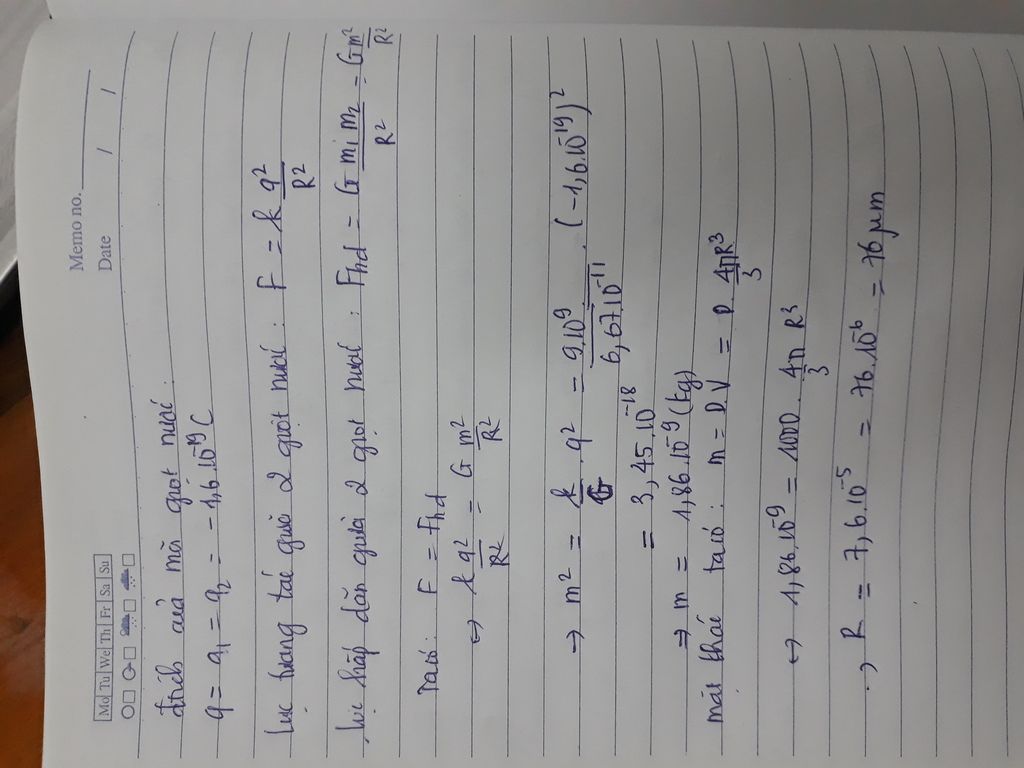 Memo no.
Mo Tu We Th Fr Sa Su
Date / /
đtích của mỗi giọt nước:
q = q₁ = q₂ = -1,6.10⁻¹⁹ C
Lực tương tác giữa 2 giọt nước: F = k q²/R²
Lực hấp dẫn giữa 2 giọt nước: Fhd = G m₁m₂/R² = G m²/R²
Ta có: F = Fhd
↔ k q²/R² = G m²/R²
→ m² = k/G . q² = 9.10⁹/6,67.10⁻¹¹ . (-1,6.10¹⁹)²
= 3,45.10⁻¹⁸
→ m = 1,86.10⁻⁹ (kg)
mặt khác ta có: m = DV = D. 4πR³/3
↔ 1,86.10⁻⁹ = 1000 . 4π/3 R³
→ R = 7,6.10⁻⁵ = 76.10⁻⁶ = 76 μm